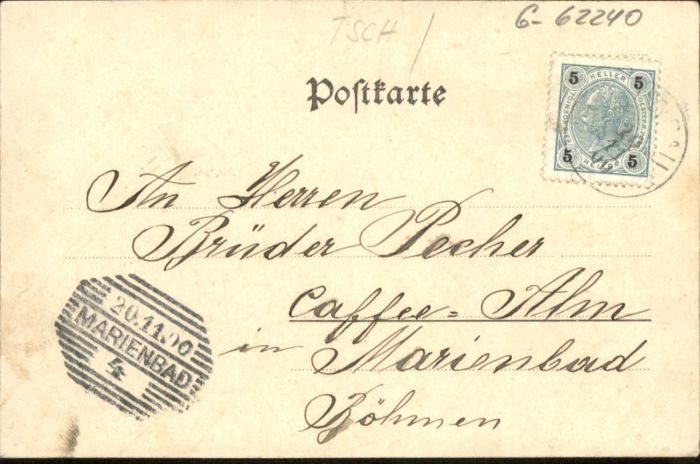 TSCH
6-62240
Postkarte
5 HELLER 5
5 HELLER 5
An Herren
Brüder Pecher
Caffee=Alm
in Marienbad
Böhmen
20.11.00
MARIENBAD
4